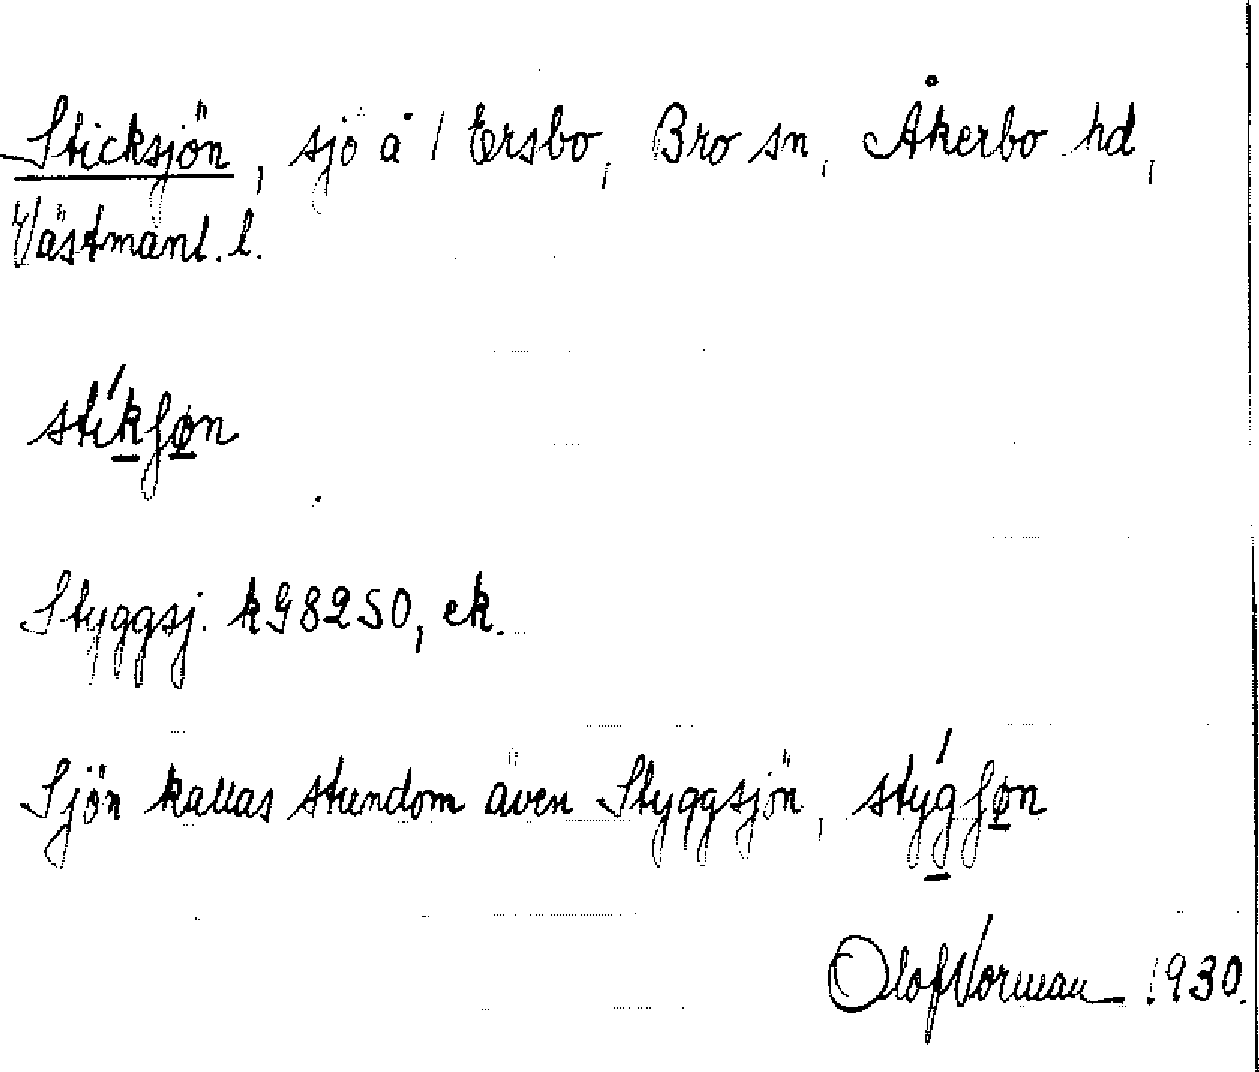 Sticksjön, sjö å 1 Ersbo, Bro sn, Åkerbo hd,
Västmanl. l.
stíkʃøn
Styggsj. kG8250, ek.
Sjön kallas stundom även Styggsjön, stýgʃøn
Olof Norman 1930.